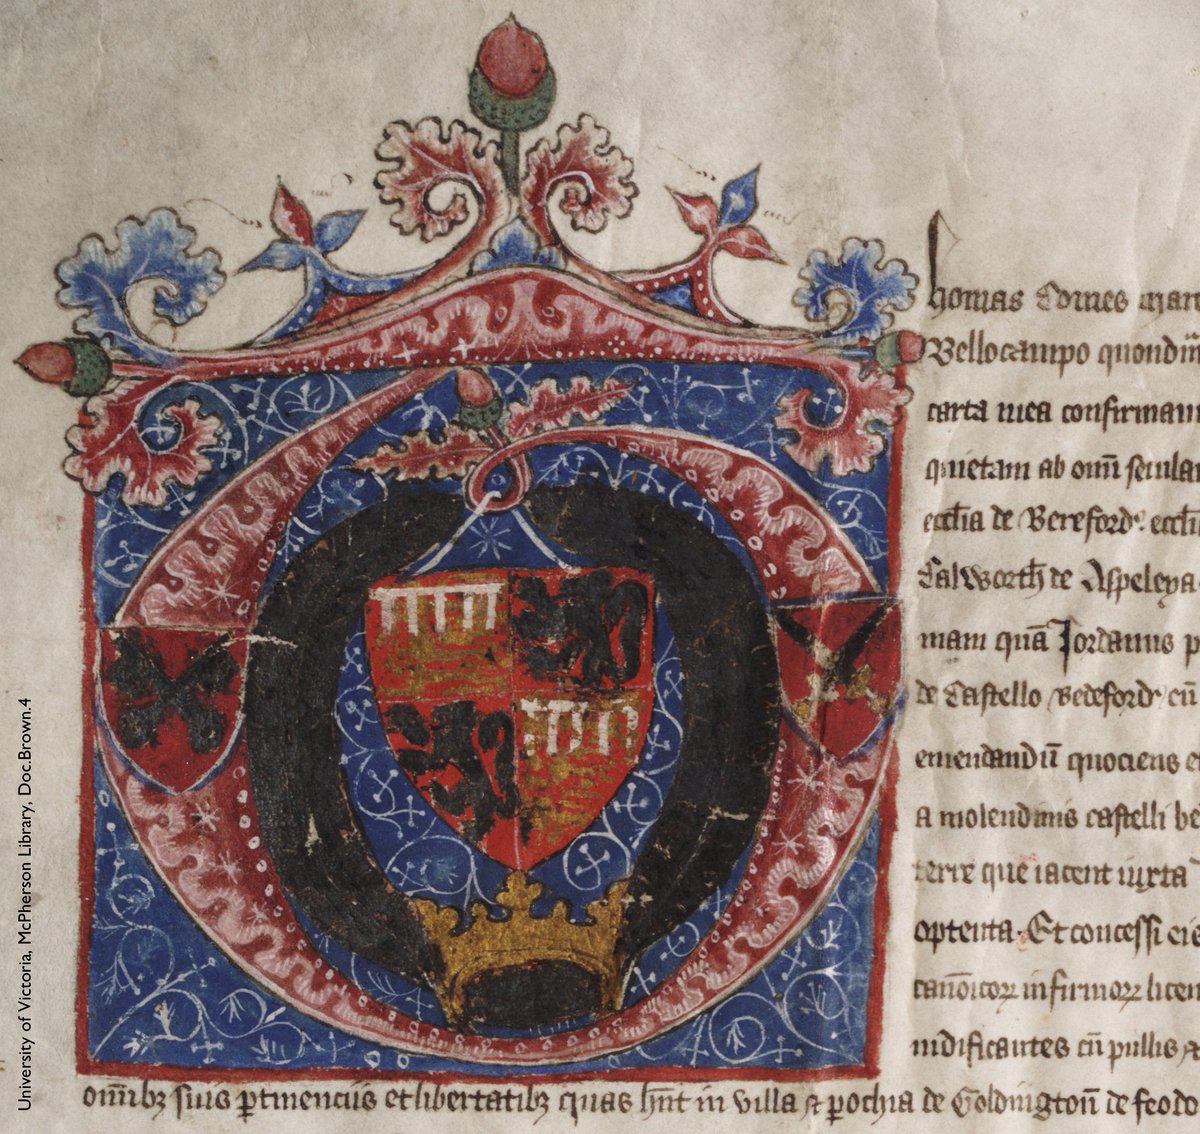 homas Comes mar
Bellocampo quondm̄
carta mea confirmam
quietam ab omī secula
eccl̄ia de Bereford. eccl̄i
Calworth de Aspeleya
mam quā Jordanus p
de Castello Bedeford cū
emendandū quociens et
A molendinis castelli be
terre que iacent iuxta
optenta. Et concessi eis
canōicoꝝ infirmoꝝ licen
nidificantes cū pullis ⁊
om̄ibꝫ suis ꝑtinenciis et libertatibꝫ quas hn̄t in villa ⁊ ꝑochia de Goldington̄ de feodo
University of Victoria, McPherson Library, Doc.Brown.4